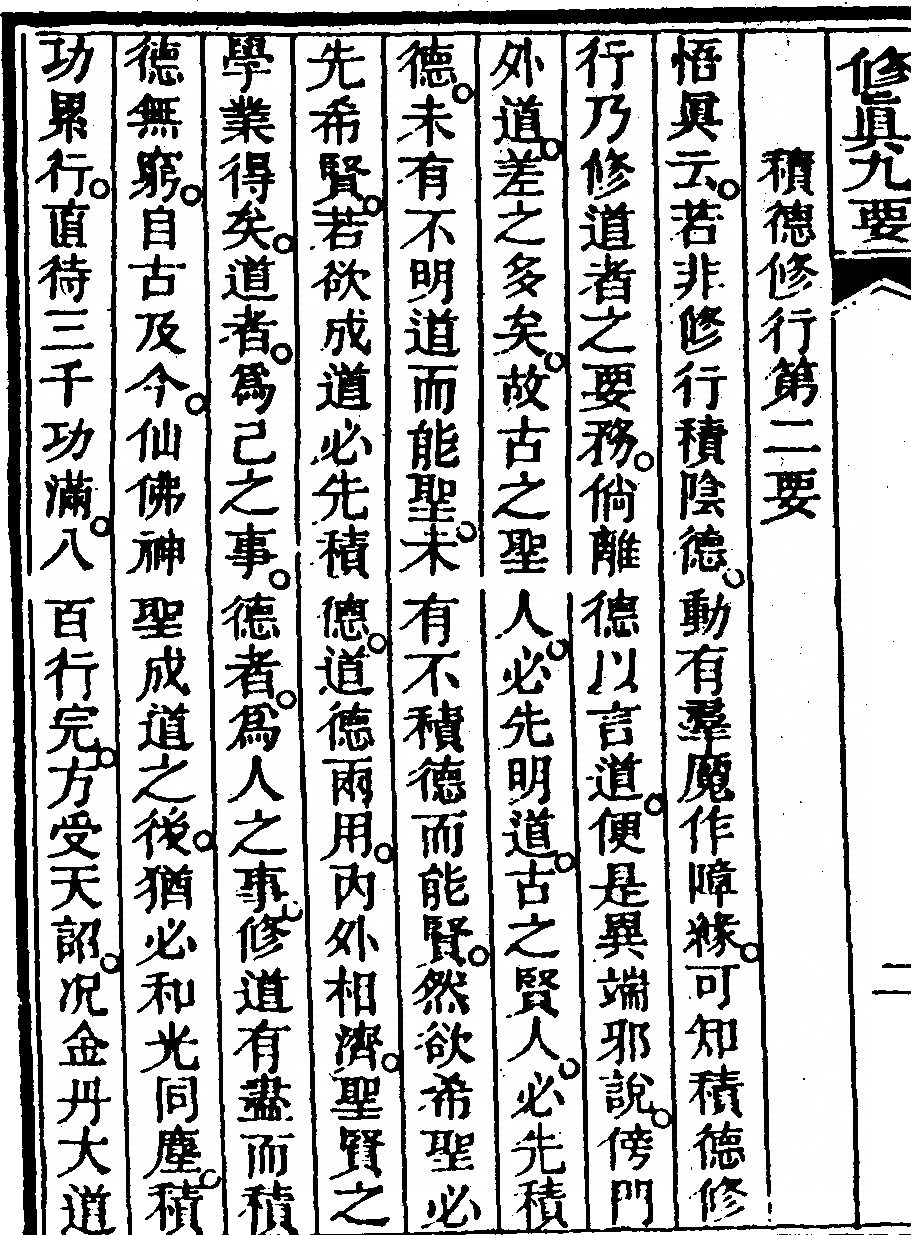 修眞九要
二
積德修行第二要
悟眞云。若非修行積陰德。動有羣魔作障緣。可知積德修
行乃修道者之要務。倘離德以言道。便是異端邪說。傍門
外道。差之多矣。故古之聖人。必先明道。古之賢人。必先積
德。未有不明道而能聖。未有不積德而能賢。然欲希聖必
先希賢。若欲成道必先積德。道德兩用。內外相濟。聖賢之
學業得矣。道者。爲己之事。德者。爲人之事。修道有盡而積
德無窮。自古及今。仙佛神聖成道之後。猶必和光同塵。積
功累行。直待三千功滿。八百行完。方受天詔。况金丹大道